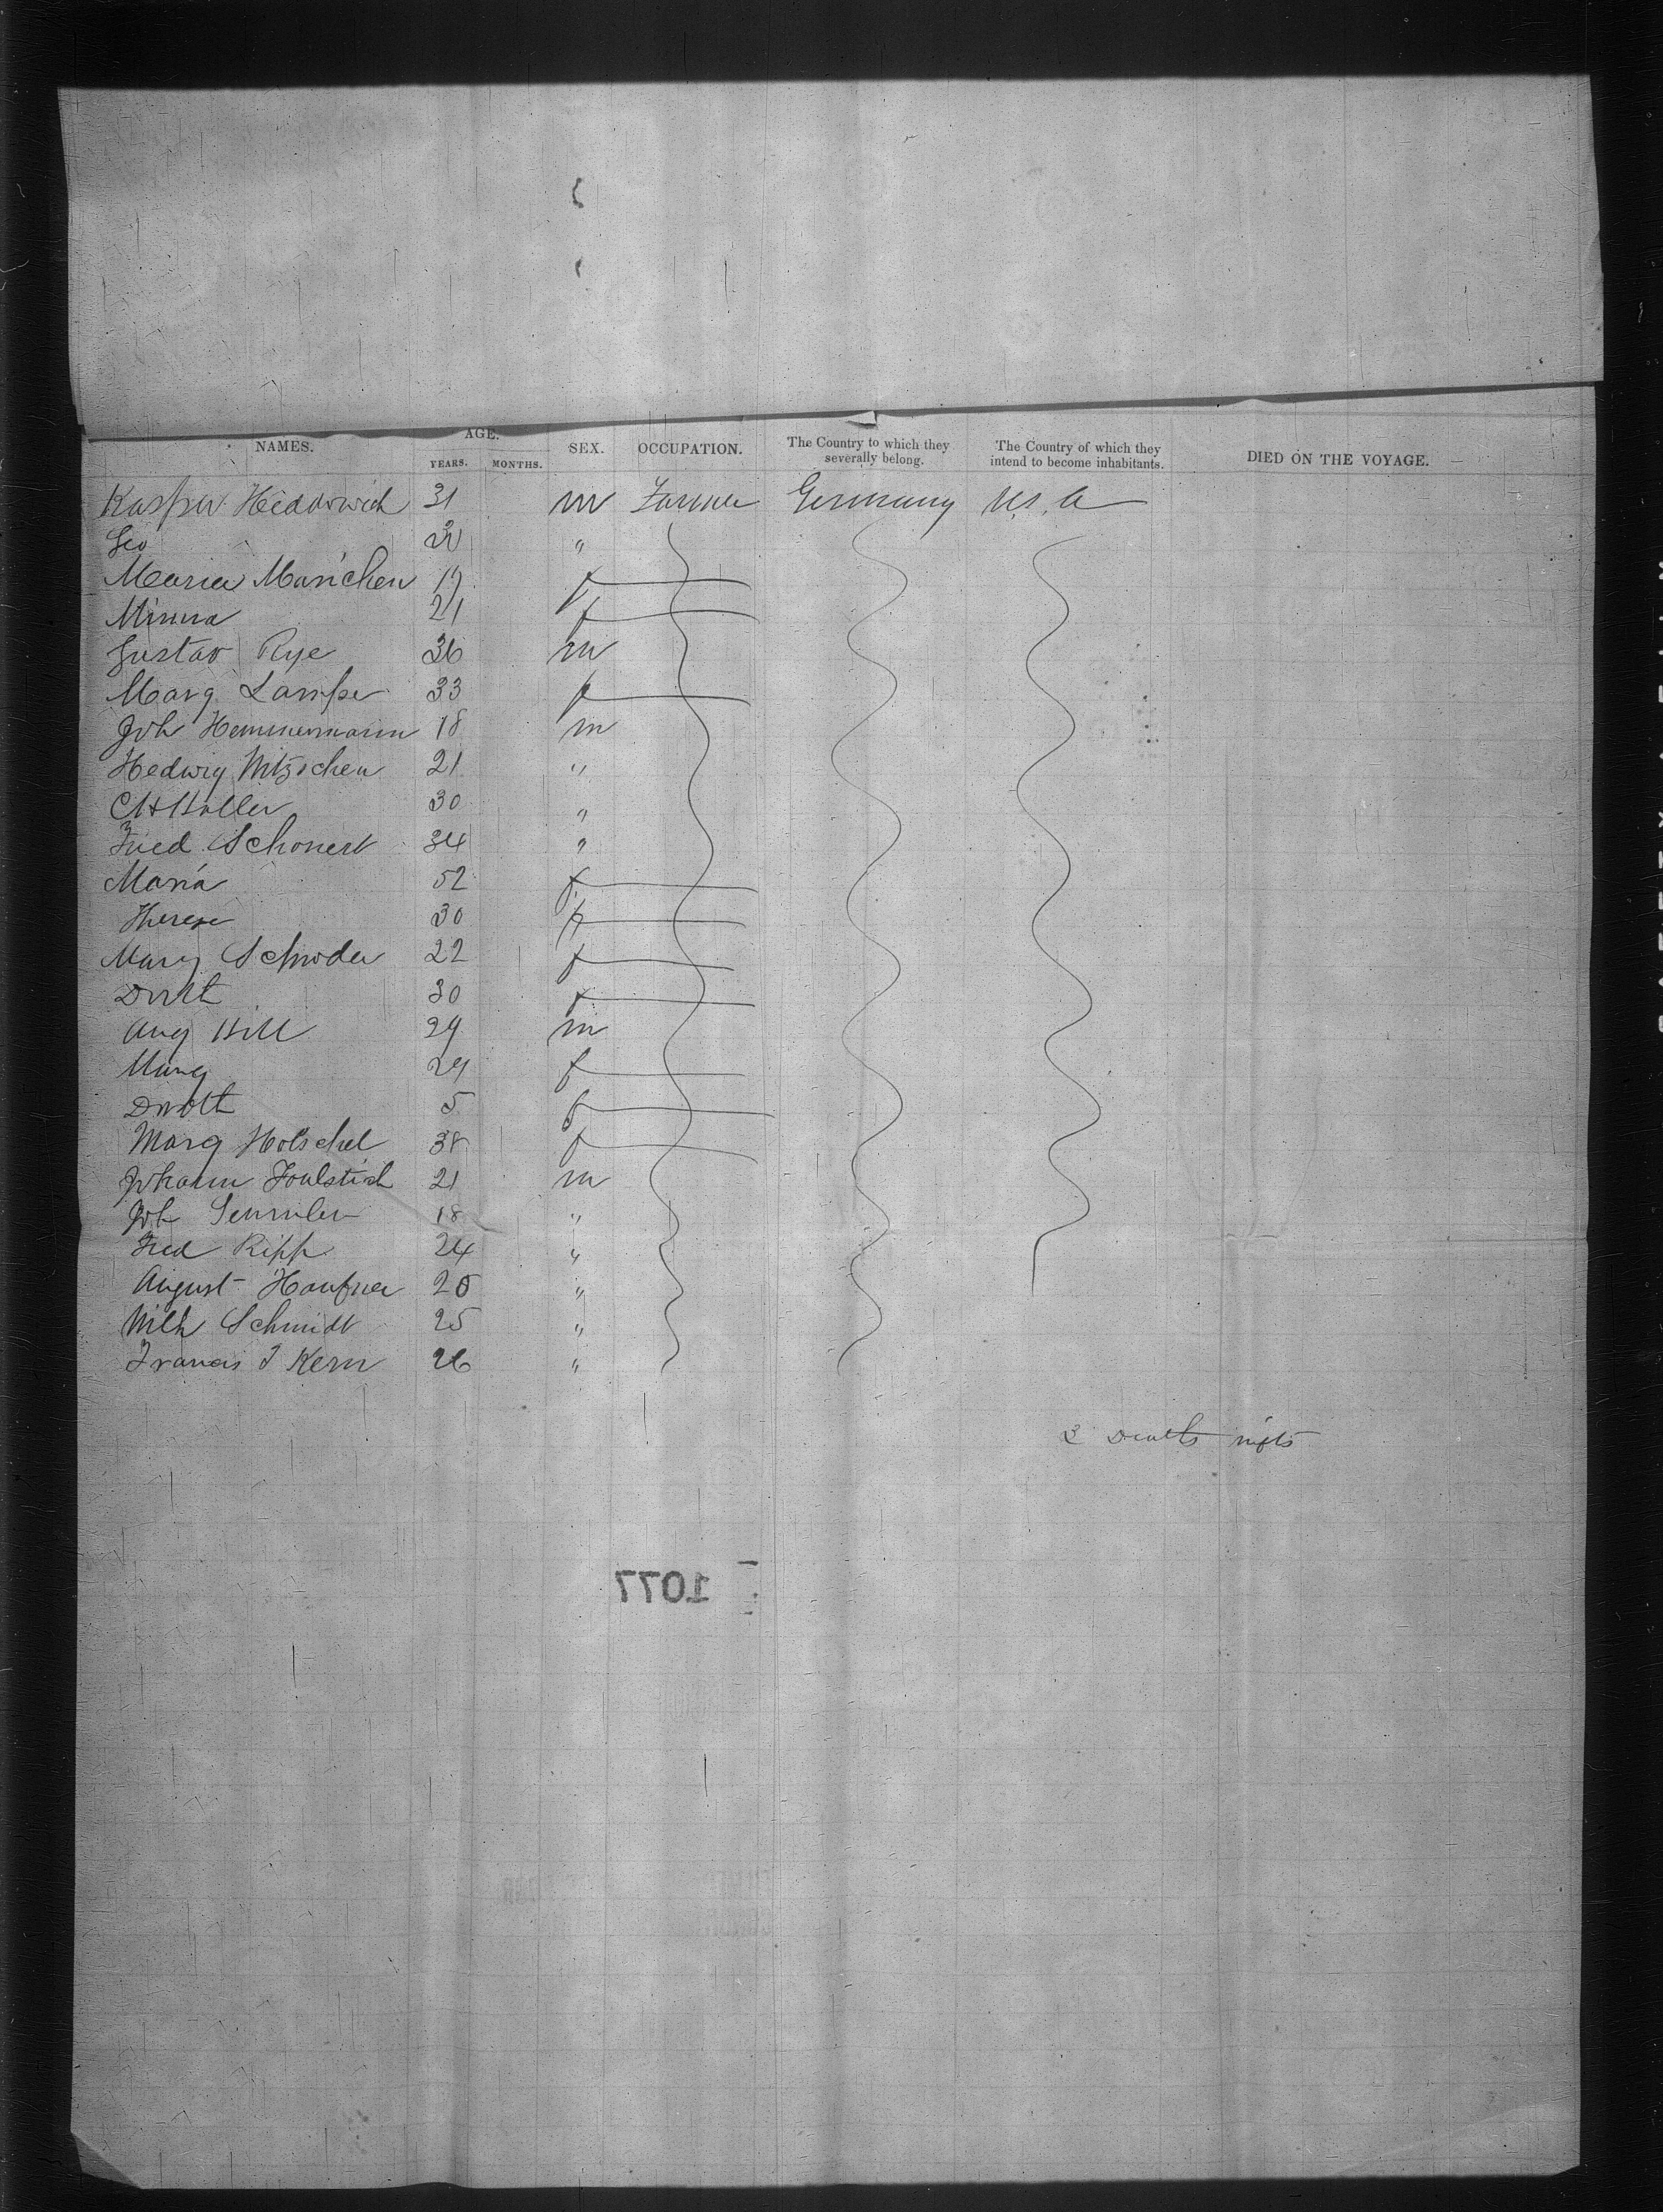 NAMES. AGE. YEARS. MONTHS. SEX. OCCUPATION. The Country to which they severally belong. The Country of which they intend to become inhabitants. DIED ON THE VOYAGE.
Kasper 31 m Farmer Germany U.S.A
Geo "
Maria Marichen 19 f
Minna 21 f
Gustav Rye 36 m
Marg Lampe 33 f
Joh Hemmermann 18 m
Hedwig Nitzschen 21 "
30 "
Fried Schonert 34 "
Maria 52 f
Therese 30 f
Marg Schroder 22 f
30 f
Aug Hill 29 m
Marg 29 f
5 f
Marg Holschel 38 f
Johann Foulstich 21 m
Joh 18 "
Fred Ripp 24 "
August Haufner 20 "
Wilh Schmidt 25 "
Francis J Kern 26 "
2
1077